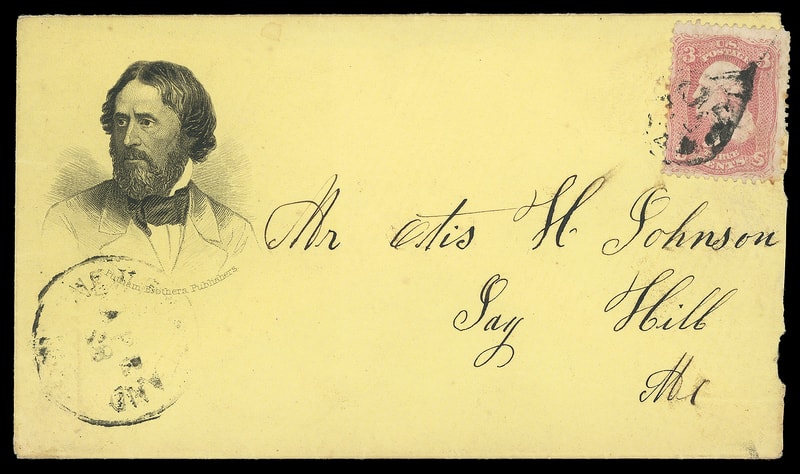 3 U.S. 3
POSTAGE
THREE
CENTS
Brothers, Publishers.
Mr Otis H Johnson
Gay Hill
Me